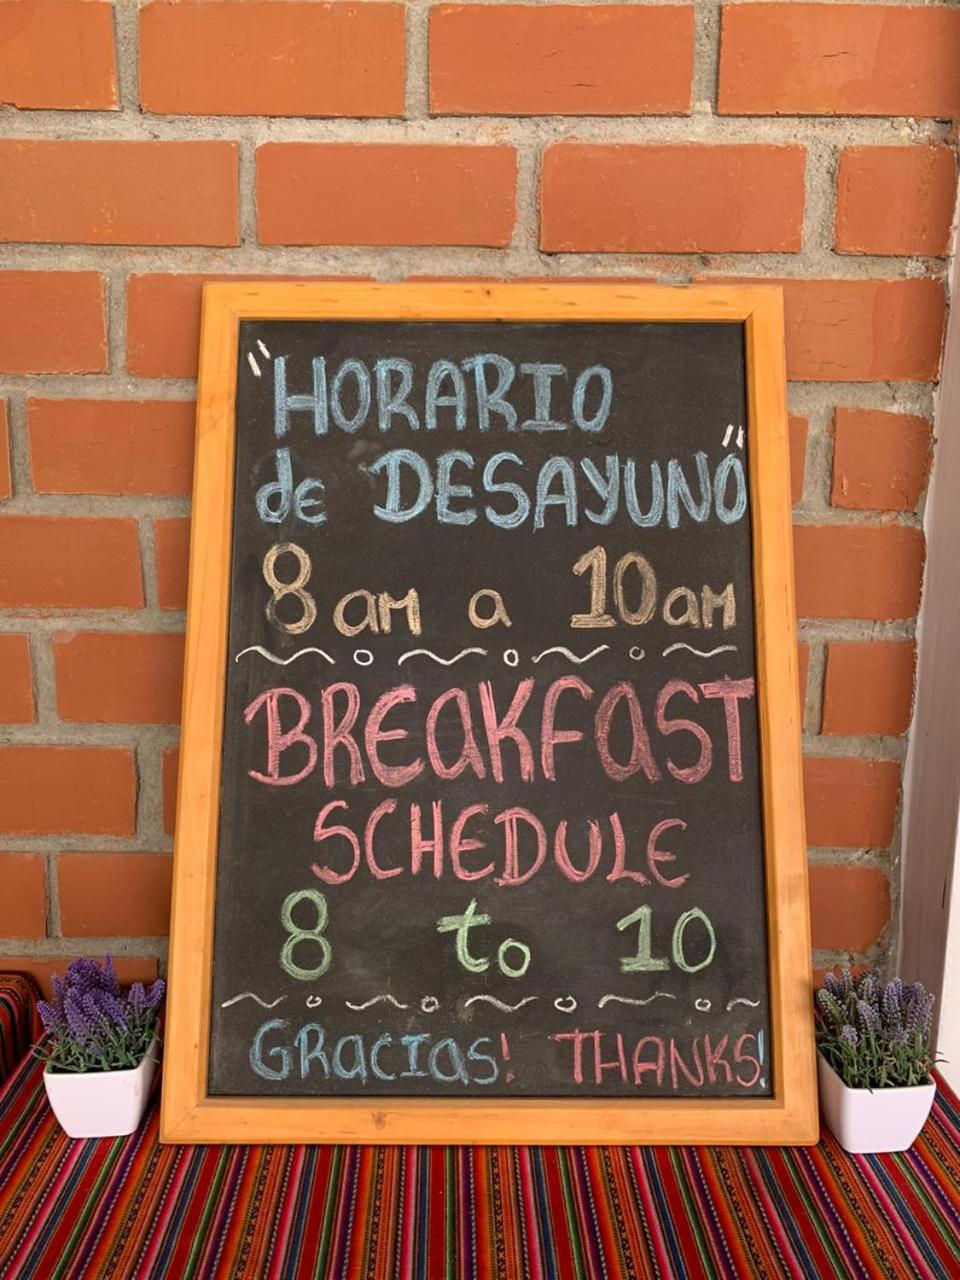 "HORARIO
de DESAYUNO"
8am a 10am
BREAKFAST
SCHEDULE
8 to 10
GRACIAS! THANKS!